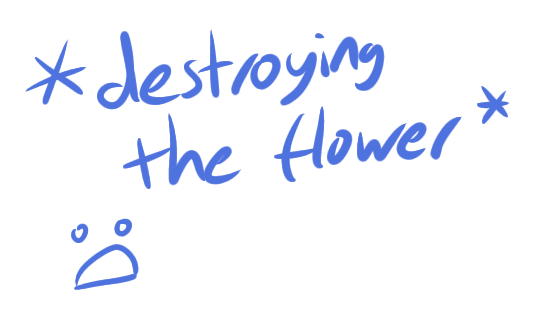 *destroying
the flower*